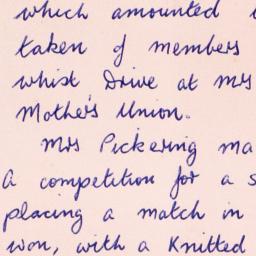 which amounted
taken of members
whist Drive at Mrs
Mother's Union.
Mrs Pickering ma
A competition for a s
placing a match in
won, with a Knitted